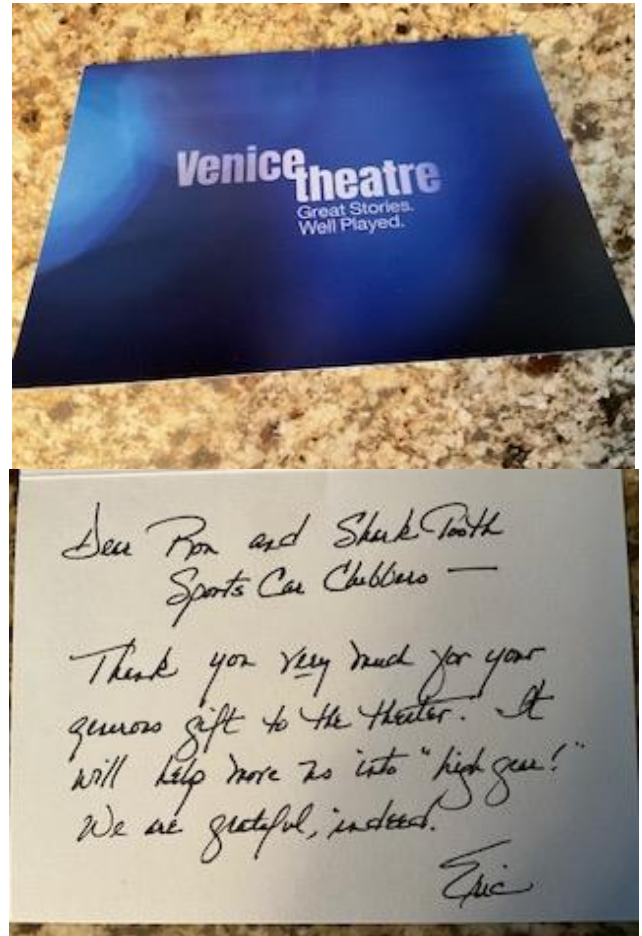 Venice
theatre
Great Stories.
Well Played.
Dear Ron and Shark Tooth
Sports Car Clubbers —
Thank you very much for your
generous gift to the theater. It
will help move us into "high gear!"
We are grateful, indeed.
Eric